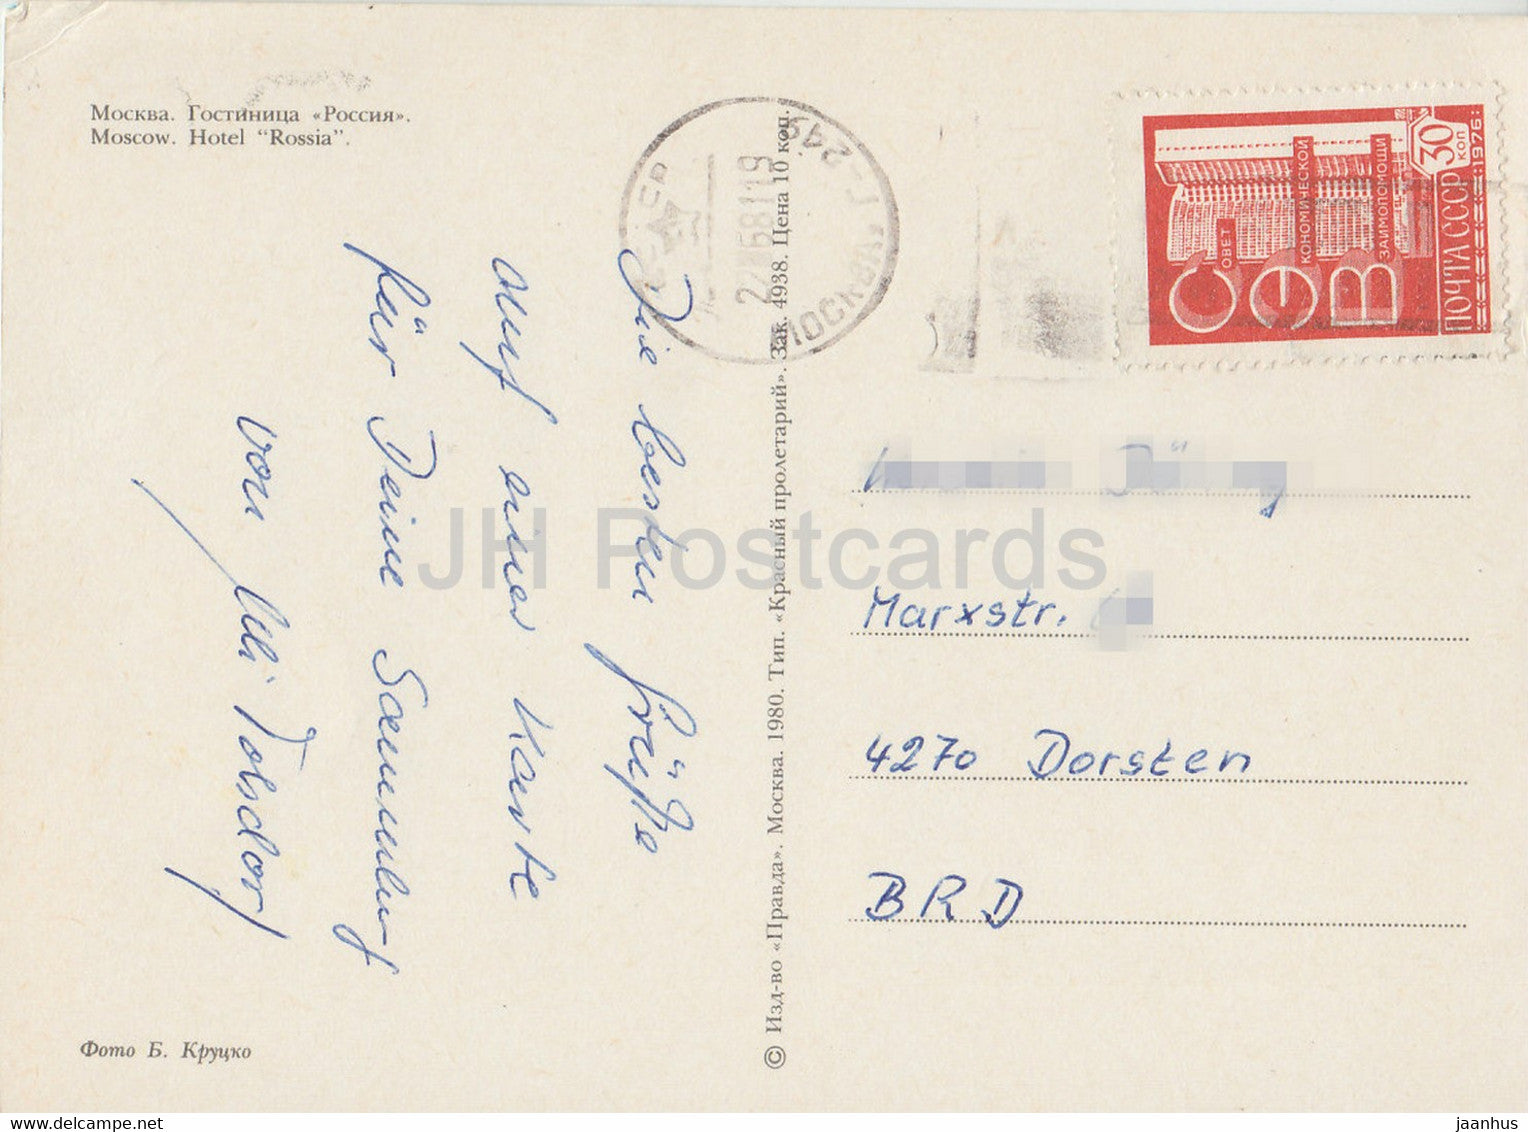 Москва. Гостиница «Россия».
Moscow. Hotel "Rossia".
Die besten Grüße
auf einer Karte
für Deine Sammlung
von Ulli Tobsdorf
Фото Б. Круцко
© Изд-во «Правда». Москва. 1980. Тип. «Красный пролетарий». Зак. 4938. Цена 10 коп.
МОСКВА
СОВЕТ
ЭКОНОМИЧЕСКОЙ
ВЗАИМОПОМОЩИ
30
КОП
ПОЧТА СССР
·1976·
Marxstr.
4270 Dorsten
BRD
JH Postcards
delcampe.net
jaanhus